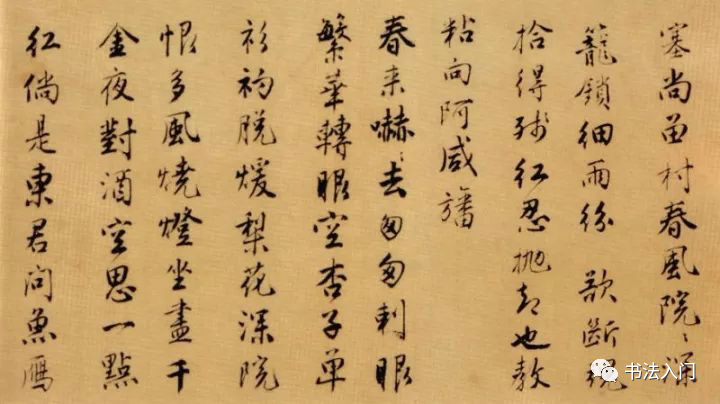 塞尚留村春風院〻深
籠鎖細雨紛〻欲斷魂
拾得殘紅忍抛却也教
粘向阿咸旛
春来嚇〻去匆匆刺眼
繁華轉眼空杏子单
衫初脱煖梨花深院
恨多風燒燈坐盡千
金夜對酒空思一點
紅倘是東君问魚鴈
书法入门